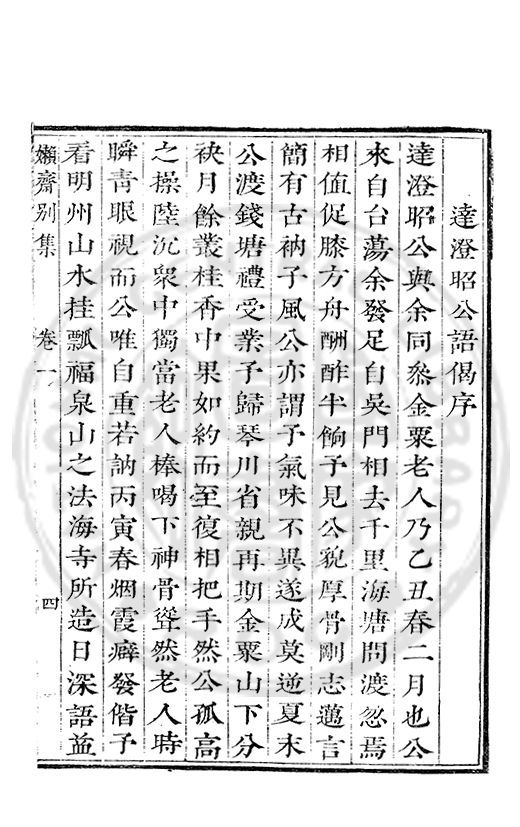 達澄昭公語偈序
達澄昭公與余同叅金粟老人乃乙丑春二月也公
來自台蕩余發足自吳門相去千里海塘問渡忽焉
相値促膝方舟酬酢半餉予見公貌厚骨剛志邁言
簡有古衲子風公亦謂予氣味不異遂成莫逆夏末
公渡錢塘禮受業予歸琴川省親再期金粟山下分
袂月餘叢桂香中果如約而至復相把手然公孤高
之操陸沉衆中獨當老人棒喝下神骨聳然老人時
瞬靑眼視而公唯自重若訥丙寅春烟霞癖發偕予
看明州山水挂瓢福泉山之法海寺所造日深語益
嬾齋别集
卷一
四